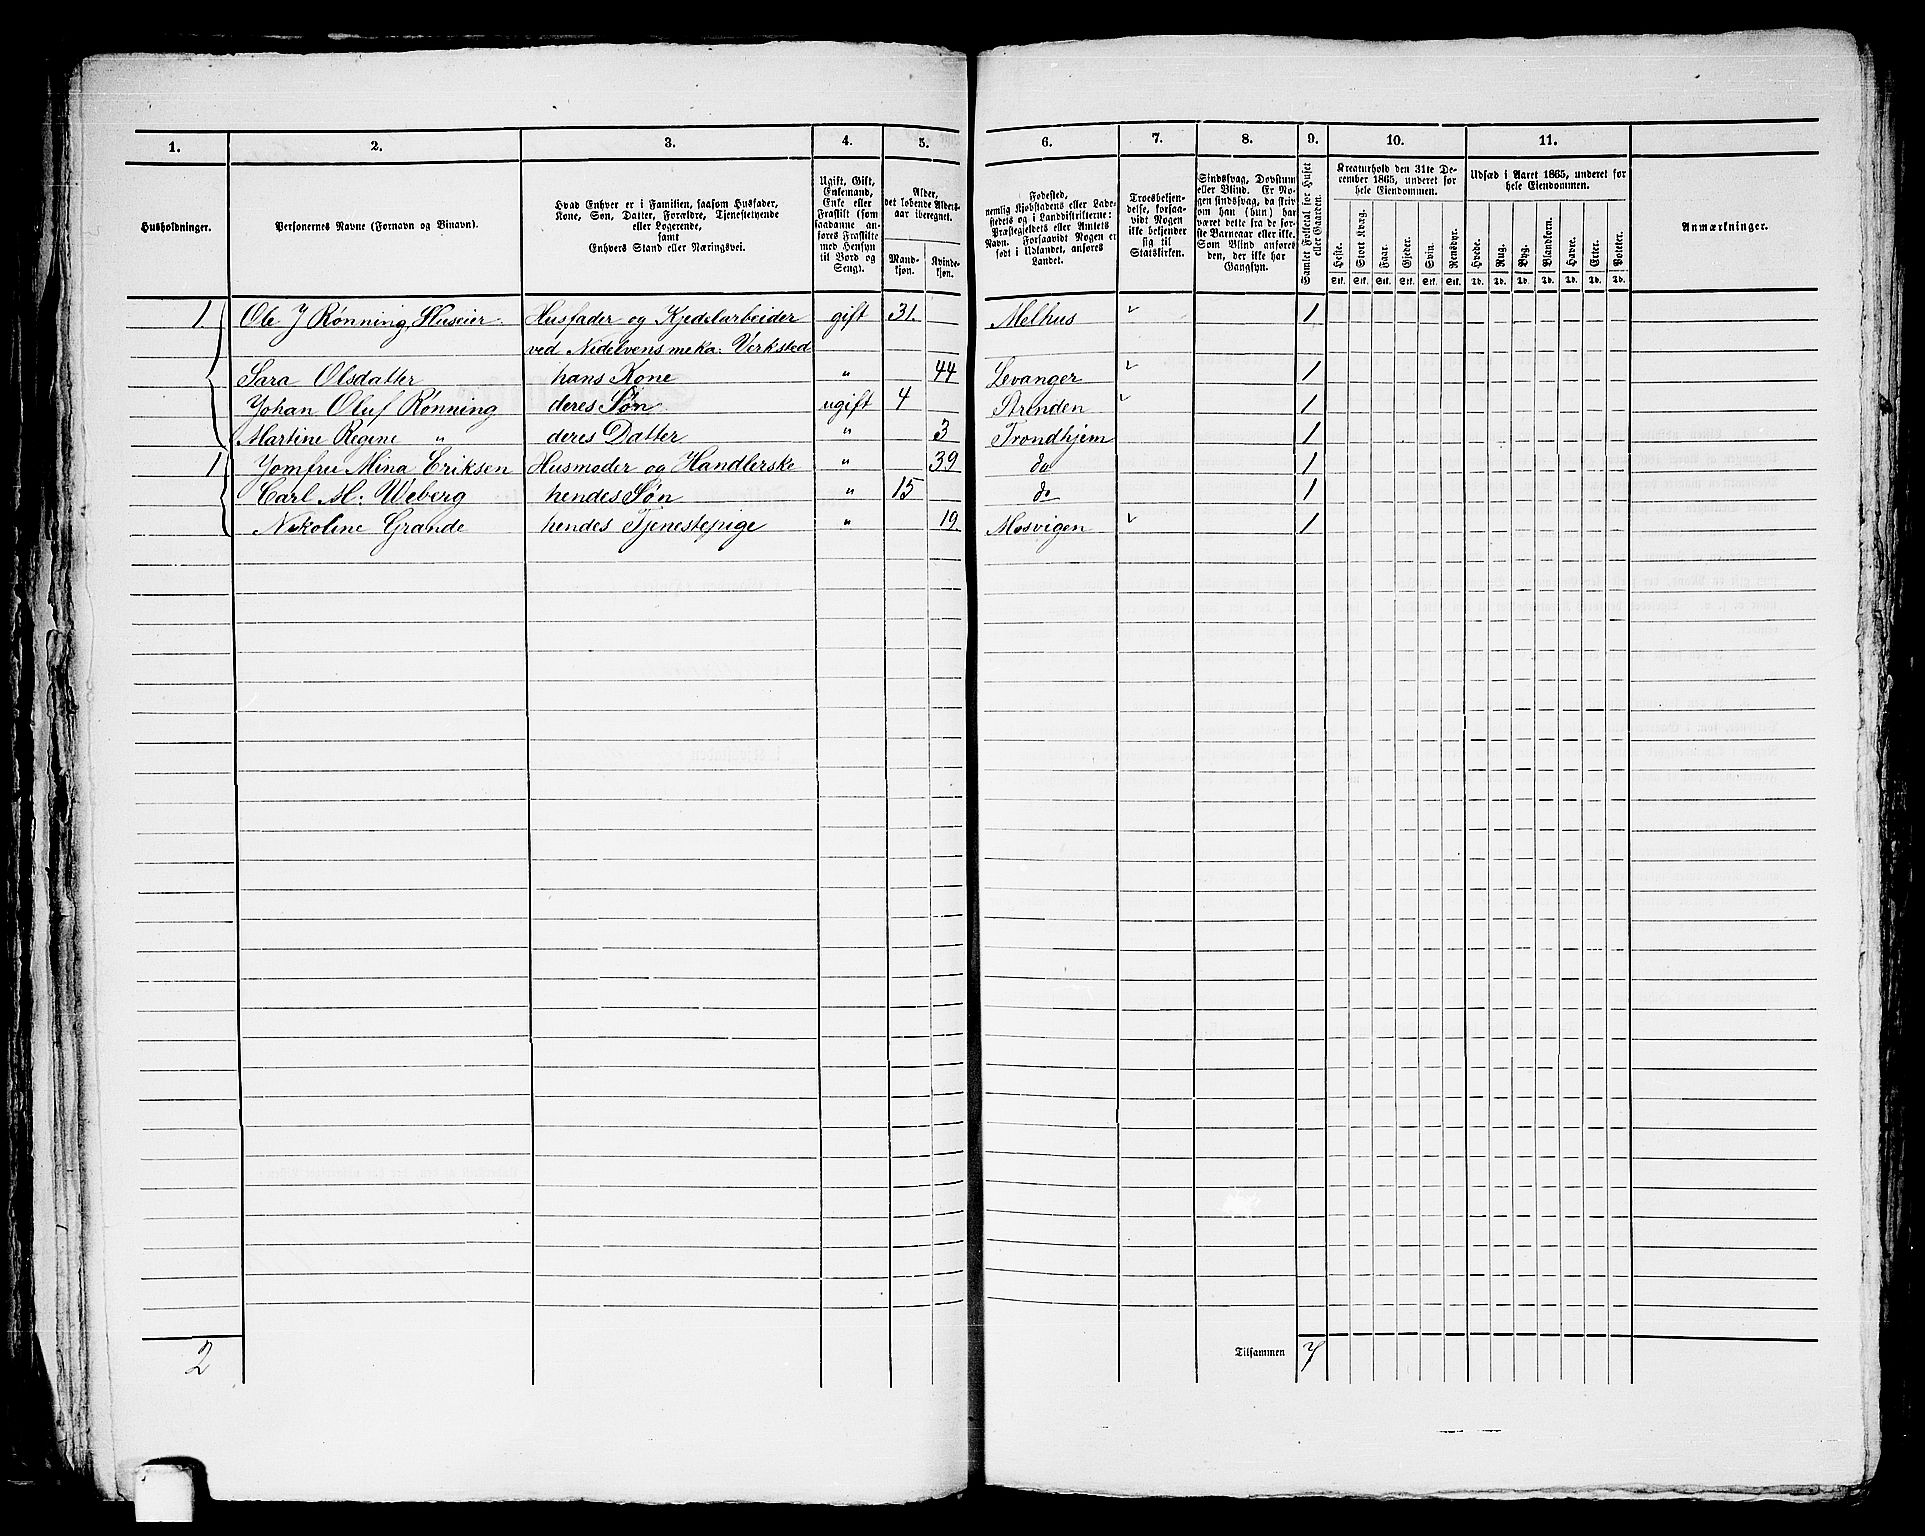 1. 2. 3. 4. 5. 6. 7. 8. 9. 10. 11.
Husholdninger.
Personernes Navne (Fornavn og Binavn).
Hvad Enhver er i Familien, saasom Husfader,
Kone, Søn, Datter, Forældre, Tjenestetyende
eller Logerende,
samt
Enhvers Stand eller Næringsvei.
Ugift, Gift,
Enkemand,
Enke eller
Fraskilt (som
saadanne an-
føres Fraskilte
med Hensyn
til Bord og
Seng).
Alder,
det løbende Alders-
aar iberegnet.
Mand-
kjøn.
Kvinde-
kjøn.
Fødested,
nemlig Kjøbstadens eller Lade-
stedets og i Landdistrikterne:
Præstegjeldets eller Amtets
Navn. Forsaavidt Nogen er
født i Udlandet, anføres
Landet.
Troesbekjen-
delse, forsaa-
vidt Nogen
ikke bekjender
sig til
Statskirken.
Sindssvag, Døvstum
eller Blind. Er No-
gen sindssvag, da skriv
om han (hun) har
været dette fra de før-
ste Barneaar eller ikke.
Som Blind anføres
den, der ikke har
Gangsyn.
Samlet Folketal for Huset
eller Gaarden.
Kreaturhold den 31te De-
cember 1865, underet for
hele Eiendommen.
Heste. Stort Kvæg. Faar. Gjeder. Svin. Rensdyr.
Stk. Stk. Stk. Stk. Stk. Stk.
Udsæd i Aaret 1865, underet for
hele Eiendommen.
Hvede. Rug. Byg. Blandkorn. Havre. Erter. Poteter.
Td. Td. Td. Td. Td. Td. Td.
Anmærkninger.
1. Ole J Rønning Huseier. Husfader og Kjedelarbeider gift 31. Melhus 1
ved Nidelvens meka: Verksted
Sara Olsdatter hans Kone " 44 Levanger 1
Johan Oluf Rønning deres Søn ugift 4 Strinden 1
Martine Regine " deres Datter " 3 Trondhjem 1
1 Jomfru Mina Eriksen Husmoder og Handlerske " 39 do 1
Carl M: Weberg hendes Søn " 15 do 1
Nikoline Grande hendes Tjenestepige " 19. Mosvigen 1
2 Tilsammen 7